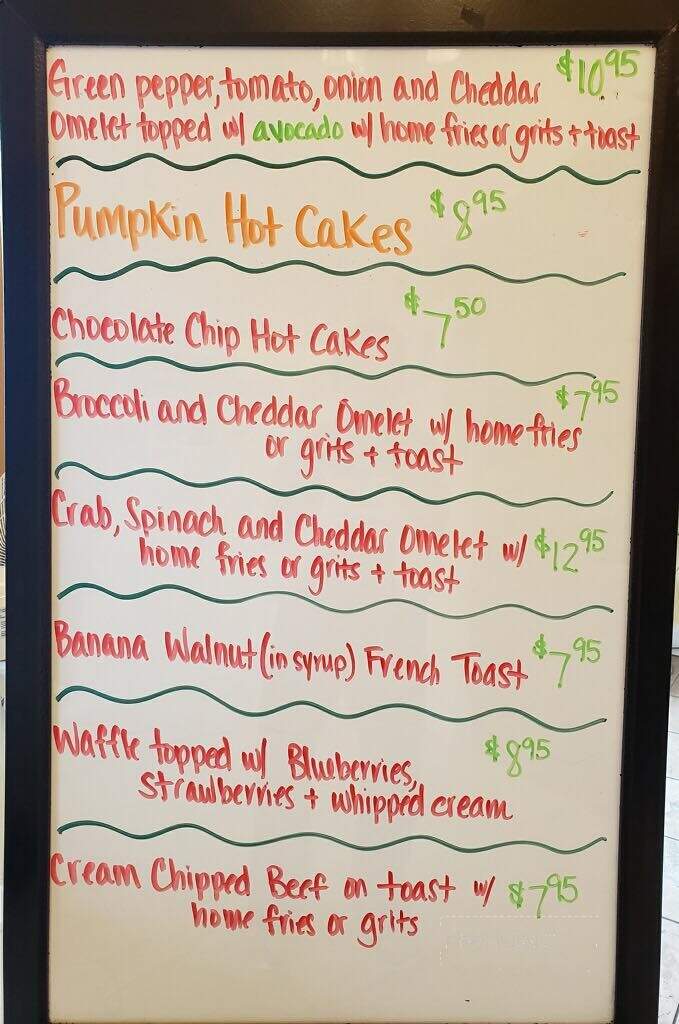 Green pepper, tomato, onion and Cheddar $10.95
Omelet topped w/ avocado w/ home fries or grits + toast
Pumpkin Hot Cakes $8.95
Chocolate Chip Hot Cakes $7.50
Broccoli and Cheddar Omelet w/ home fries $7.95
or grits + toast
Crab, Spinach and Cheddar Omelet w/ $12.95
home fries or grits + toast
Banana Walnut (in syrup) French Toast $7.95
Waffle topped w/ Blueberries, $8.95
Strawberries + whipped cream
Cream Chipped Beef on toast w/ $7.95
home fries or grits